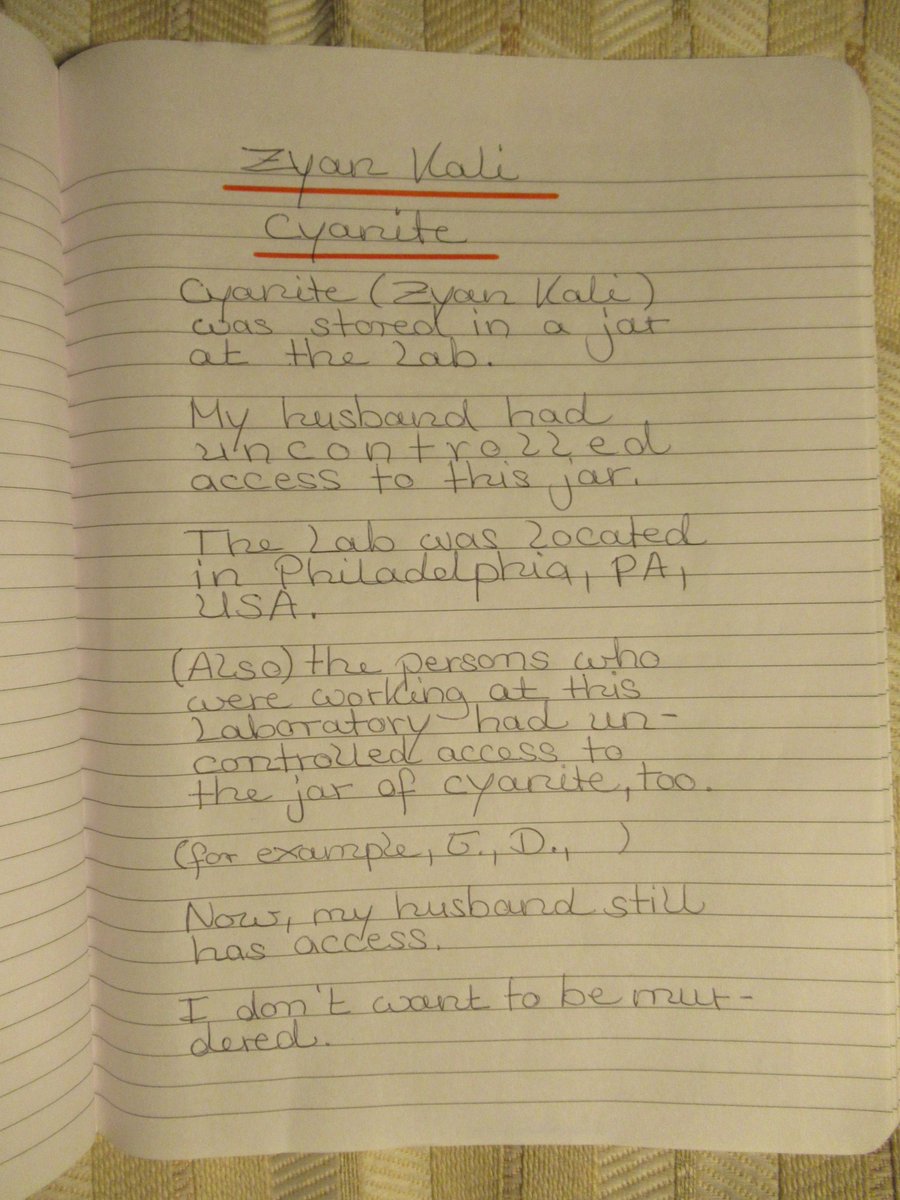 Zyan Kali
Cyanite
Cyanite (Zyan Kali)
was stored in a jar
at the lab.
My husband had
uncontrolled
access to this jar.
The lab was located
in Philadelphia, PA,
USA.
(Also) the persons who
were working at this
laboratory had un-
controlled access to
the jar of cyanite, too.
(for example, G., D., )
Now, my husband still
has access.
I don't want to be mur-
dered.